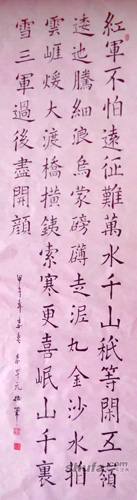 紅軍不怕遠征難萬水千山祇等閑五嶺
逶迤騰細浪烏蒙磅礴走泥丸金沙水拍
雲崖煖大渡橋橫鐵索寒更喜岷山千裏
雪三軍過後盡開顔
甲午年
shufa.com